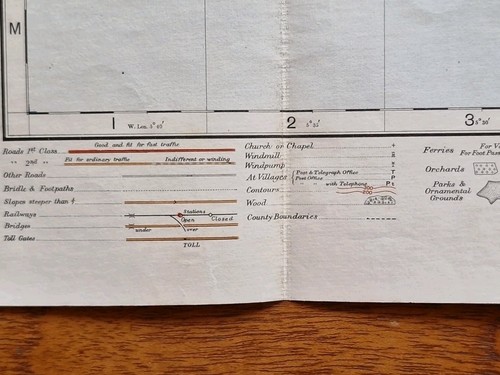 M
1 W. Lon. 5° 40′ 2 5° 35′ 3 5° 30′
Roads 1st Class Good and fit for fast traffic
" 2nd " Fit for ordinary traffic Indifferent or winding
Other Roads
Bridle & Footpaths
Slopes steeper than
Railways Stations Open Closed
Bridges under over
Toll Gates TOLL
Church or Chapel +
Windmill
Windpump
At Villages Post & Telegraph Office T
Post Office P
" with Telephone Pt
Contours 200
Wood
County Boundaries
Ferries For V
For Foot Pass
Orchards
Parks &
Ornamental
Grounds